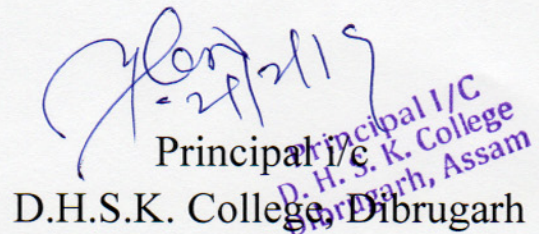 Principal i/c
D.H.S.K. College, Dibrugarh
Principal I/C
D. H. S. K. College
Dibrugarh, Assam